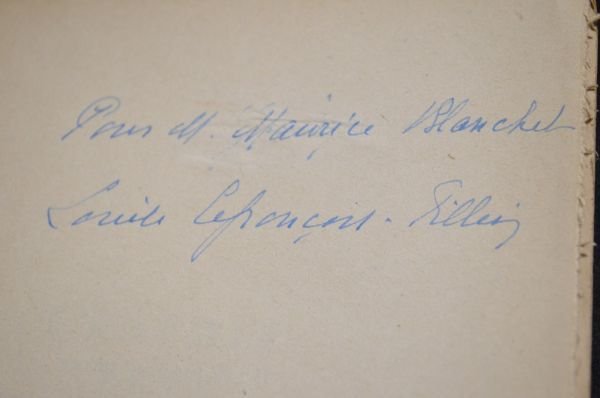 Pour M. Maurice Blanchet
Louise Lefrançois-Pillion